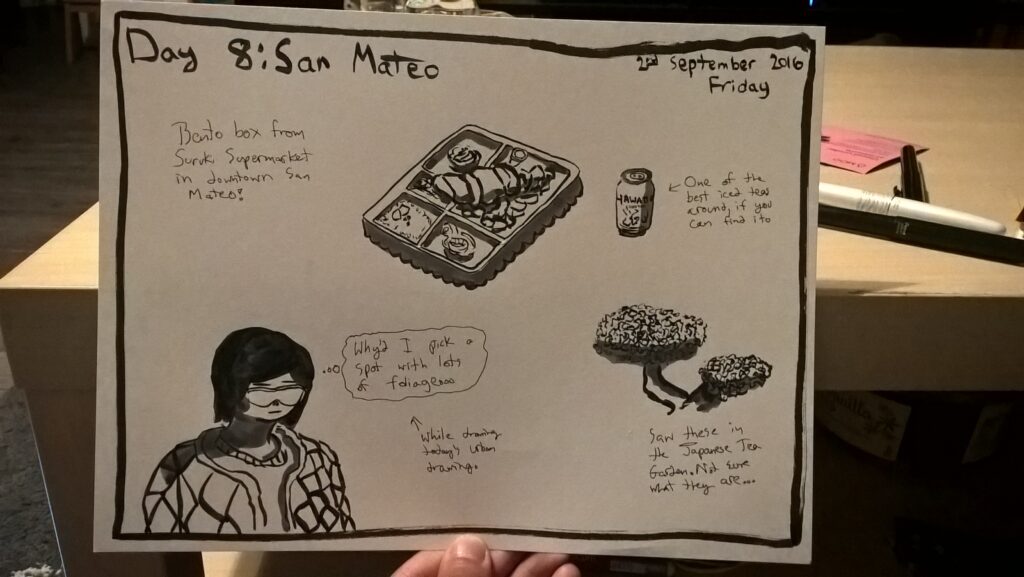 Day 8: San Mateo
2nd September 2016
Friday
Bento box from
Suruki Supermarket
in downtown San
Mateo!
HAWAII
← One of the
best iced teas
around, if you
can find it.
Why'd I pick a
spot with lots
of foliage...
While drawing
today's urban
drawing.
Saw these in
the Japanese Tea
Garden. Not sure
what they are...